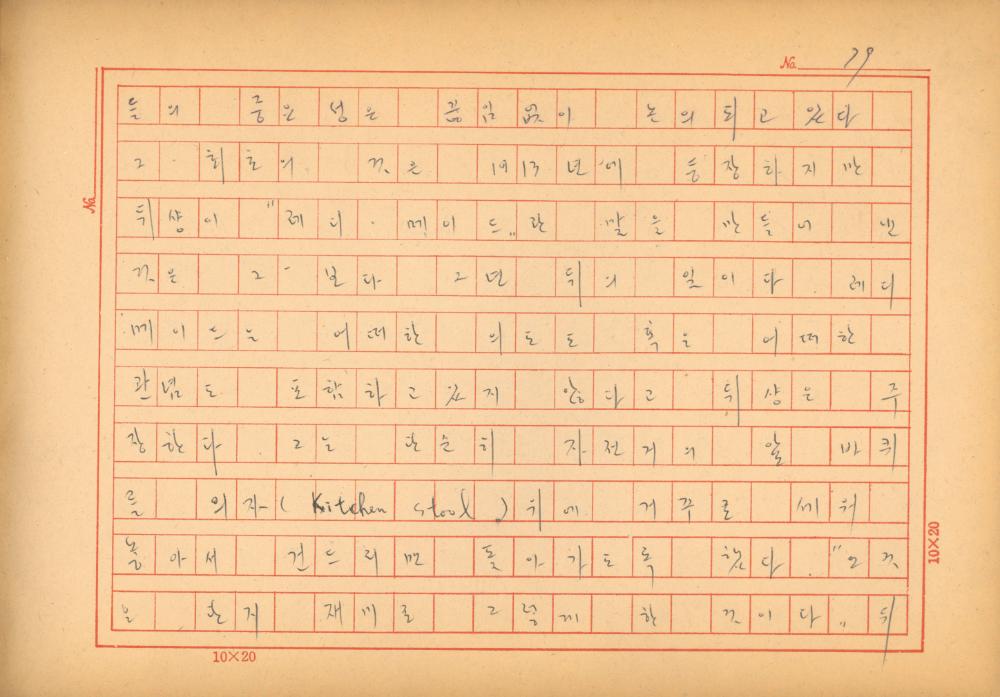 No. 79
들의 중은성은 끊임없이 논의되고 있다
그 최초의 것은 1913년에 등장하지만
뒤샹이 "레디·메이드"란 말을 만들어 낸
것은 그 보다 2년 뒤의 일이다. 레디
메이드는 어떠한 의도도 혹은 어떠한
관념도 포함하고 있지 않다고 뒤샹은 주
장한다 그는 단순히 자전거의 앞 바퀴
를 의자(Kitchen stool)위에 거꾸로 세워
놓아서 건드리면 돌아가도록 했다. "그것
은 한게 재미로 그렇게 한 것이다" 뒤
No.
10×20
10×20